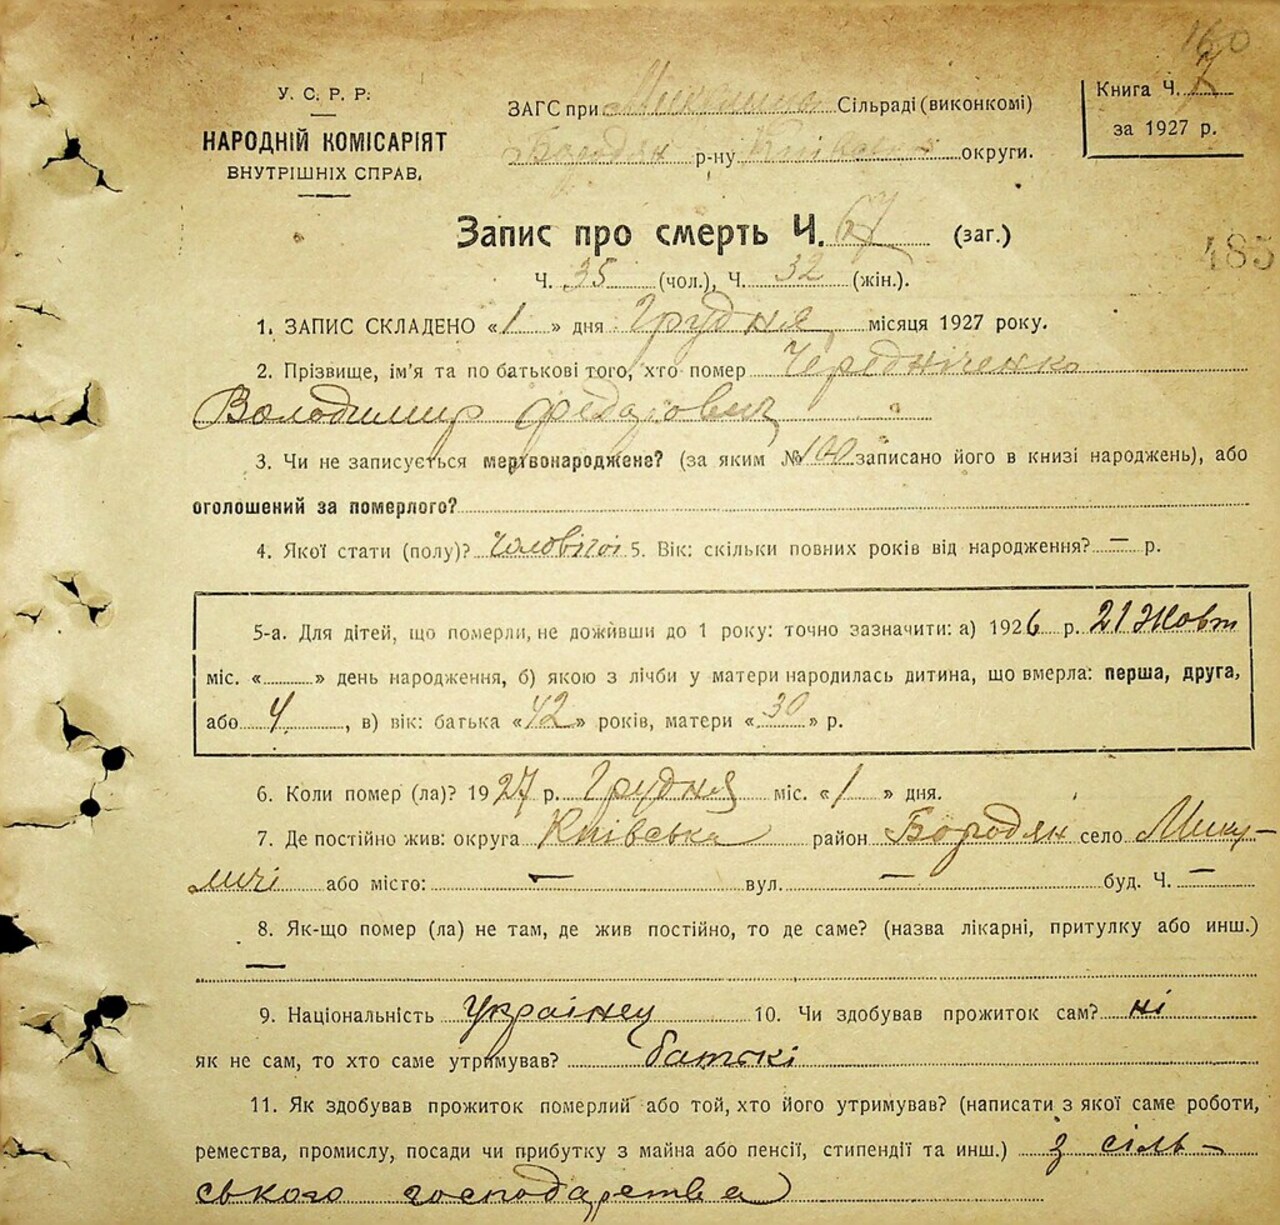 160
У. С. Р. Р.
НАРОДНІЙ КОМІСАРІЯТ
ВНУТРІШНІХ СПРАВ.
ЗАГС при Сільраді (виконкомі)
Бородян р-ну Київської округи.
Книга Ч. 7
за 1927 р.
Запис про смерть Ч. 67 (заг.)
485
Ч. 35 (чол.), Ч. 32 (жін.).
1. ЗАПИС СКЛАДЕНО «1» дня Грудня місяця 1927 року.
2. Прізвище, ім'я та по батькові того, хто помер Чередніченко
Володимир Федорович
3. Чи не записується мертвонароджене? (за яким № 100 записано його в книзі народжень), або
оголошений за померлого?
4. Якої стати (полу)? чоловічої 5. Вік: скільки повних років від народження? — р.
5-а. Для дітей, що померли, не доживши до 1 року: точно зазначити: а) 1926 р. 21 Жовт
міс. « » день народження, б) якою з лічби у матери народилась дитина, що вмерла: перша, друга,
або 4, в) вік: батька «42» років, матери «30» р.
6. Коли помер (ла)? 1927 р. Грудня міс. «1» дня.
7. Де постійно жив: округа Київська район Бородян село Мику-
личі або місто: — вул. — буд. Ч. —
8. Як-що помер (ла) не там, де жив постійно, то де саме? (назва лікарні, притулку або инш.)
—
9. Національність Українец 10. Чи здобував прожиток сам? ні
як не сам, то хто саме утримував? батькі
11. Як здобував прожиток померлий або той, хто його утримував? (написати з якої саме роботи,
ремества, промислу, посади чи прибутку з майна або пенсії, стипендії та инш.) з сіль-
ського господарства